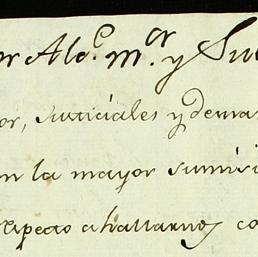 or Alc.e m.or y Su
or, Juiciales y demas
n la mayor sumisi
respecto a hallarnos co